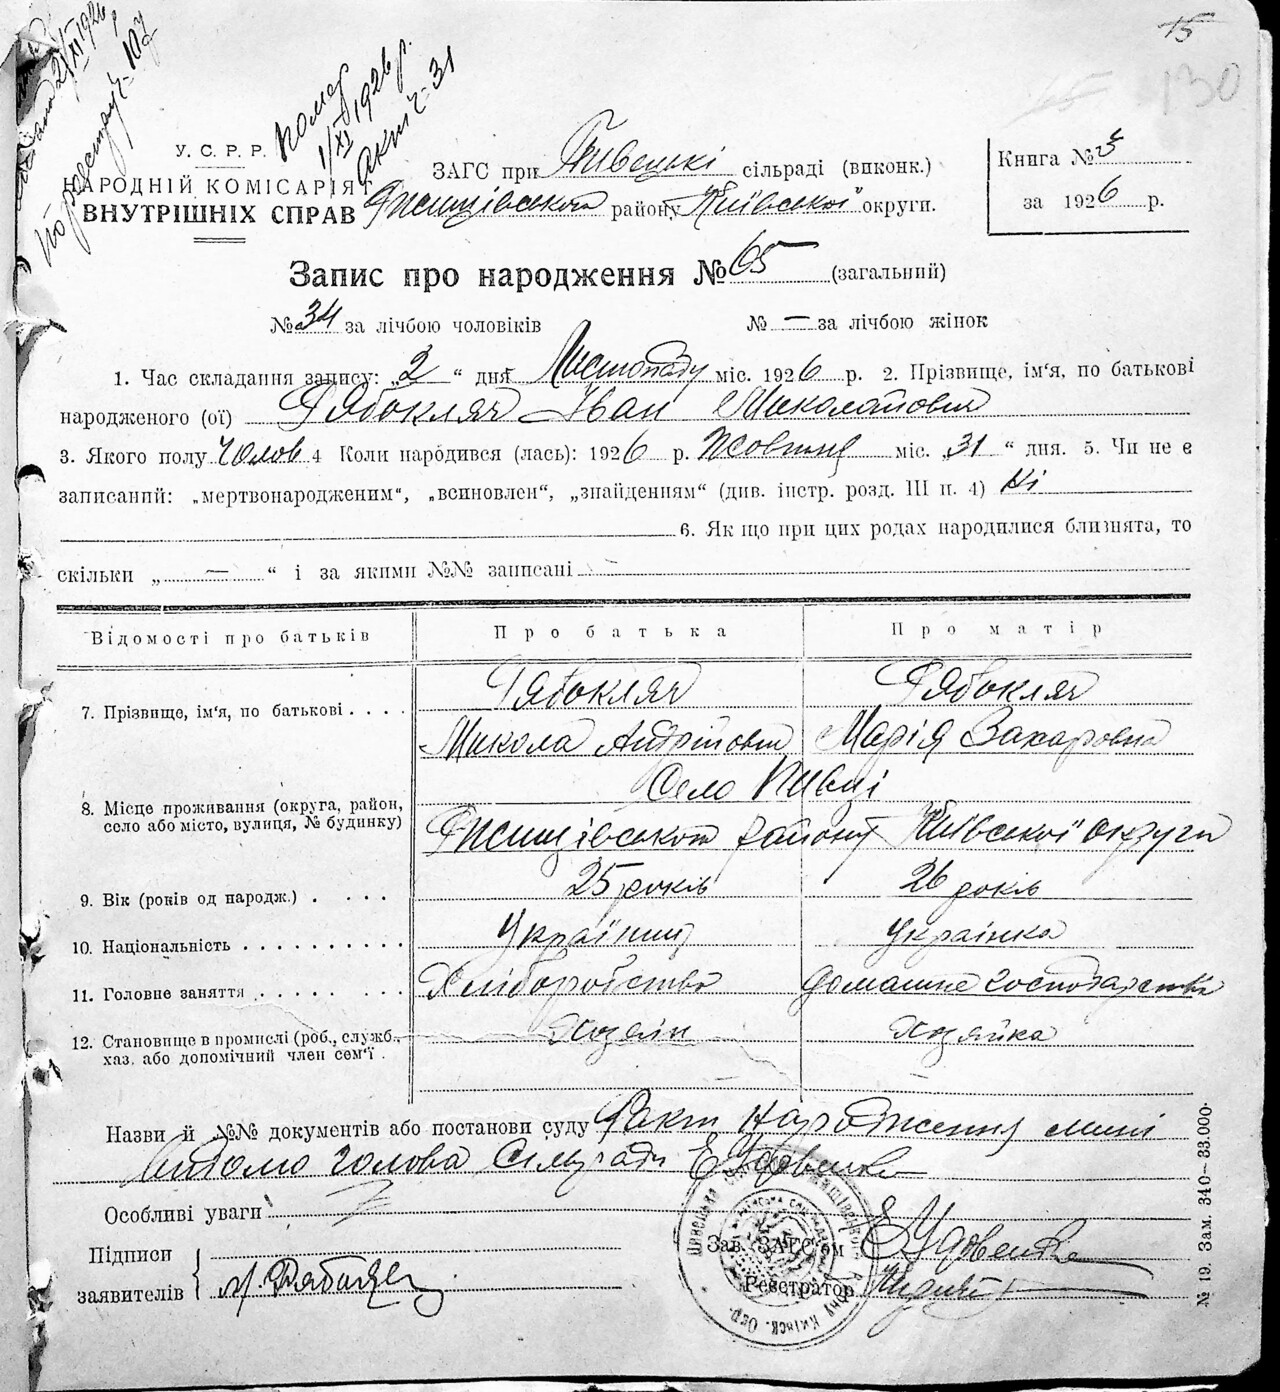 15
130
Помер
1/XI 1926 р.
акт ч. 31
У. С. Р. Р.
НАРОДНІЙ КОМІСАРІЯТ
ВНУТРІШНІХ СПРАВ
ЗАГС при Півецькі сільраді (виконк.)
Ржищівського району Київської округи.
Книга № 3
за 1926 р.
Запис про народження № 65 (загальний)
№ 34 за лічбою чоловіків № — за лічбою жінок
1. Час складання запису: „2“ дня Листопаду міс. 1926 р. 2. Прізвище, ім'я, по батькові
народженого (ої) Рябокляч Іван Миколайович
3. Якого полу Чолов 4 Коли народився (лась): 1926 р. Жовтня міс. „31“ дня. 5. Чи не є
записаний: „мертвонародженим“, „всиновлен“, „знайденням“ (див. інстр. розд. III п. 4) Ні
6. Як що при цих родах народилися близнята, то
скільки „ — “ і за якими №№ записані –
Відомості про батьків Про батька Про матір
7. Прізвище, ім'я, по батькові . . . . Рябокляч Рябокляч
Микола Андрійович Марія Захаровна
8. Місце проживання (округа, район, село або місто, вулиця, № будинку) Село Півці
Ржищівського району Київської округи
9. Вік (років од народж.) . . . . 25 років 26 років
10. Національність . . . . . . . . . . Українец Українка
11. Головне заняття . . . . . . . . . Хліборобство домашнє господарство
12. Становище в промислі (роб., служб., хаз. або допомічний член сем'ї . Хозяїн Хозяйка
Назви й №№ документів або постанови суду Факт народження мині
відомо голова Сільради Е Удовенко
Особливі уваги
Підписи
заявителів М. Рябокляч
Зав. ЗАГС'ом ЕУдовенко
Реєстратор
№ 19. Зам. 340—33.000.